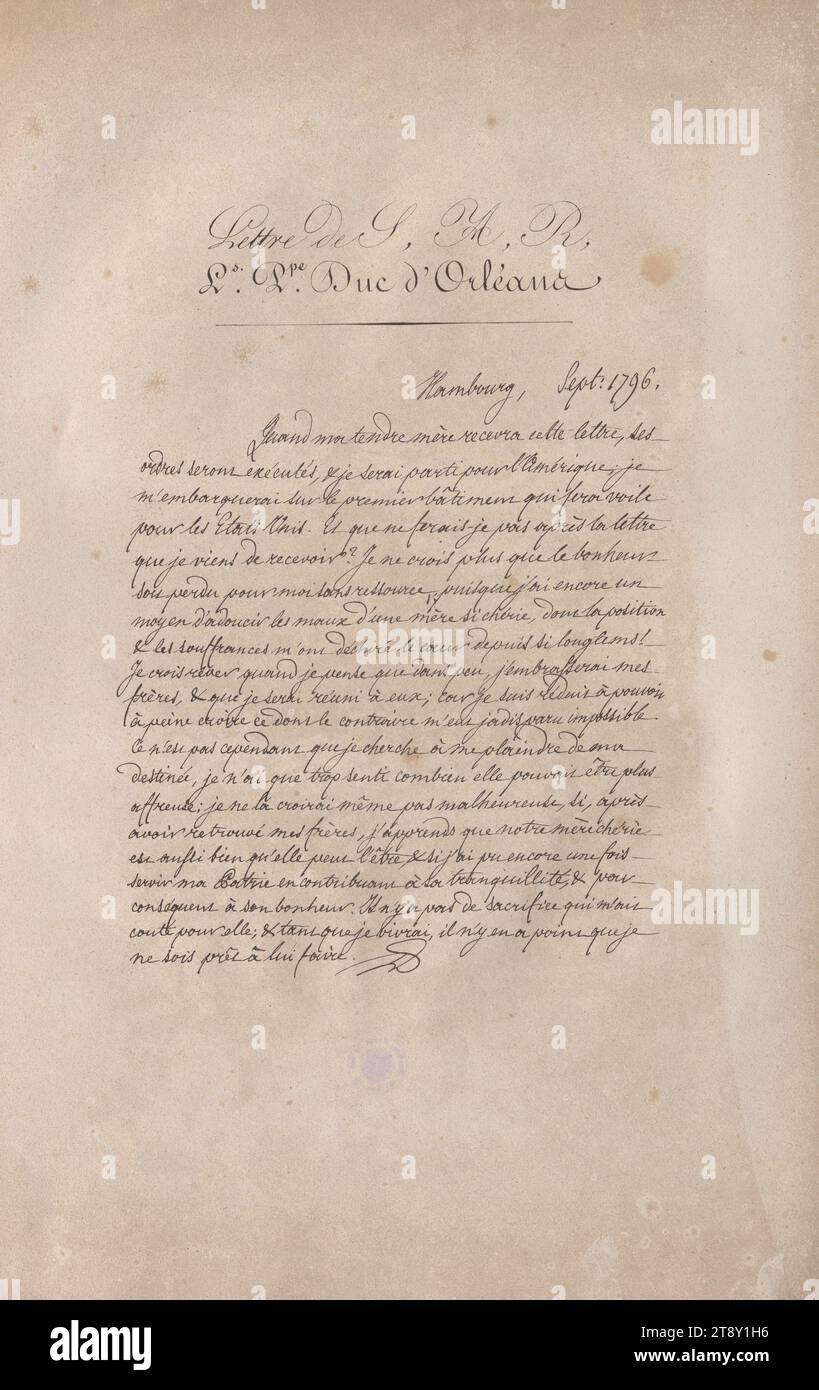 Lettre de S. A. R.
Ls. Ppe. Duc d'Orléans
Hambourg, Sept. 1796.
Quand ma tendre mère recevra cette lettre, ses
ordres seront exécutés, & je serai parti pour l'Amérique; je
m'embarquerai sur le premier bâtiment qui fera voile
pour les Etats Unis. Et que ne ferais-je pas après la lettre
que je viens de recevoir? Je ne crois plus que le bonheur
soit perdu pour moi sans ressource, puisque j'ai encore un
moyen d'adoucir les maux d'une mère si chérie, dont la position
& les souffrances m'ont déchiré le cœur depuis si longtems!
Je crois rêver quand je pense que dans peu, j'embrasserai mes
frères, & que je serai réuni à eux; car je suis réduit à pouvoir
à peine croire ce dont le contraire m'eut jadis paru impossible.
Ce n'est pas cependant que je cherche à me plaindre de ma
destinée, je n'ai que trop senti combien elle pouvait être plus
affreuse; je ne la croirai même pas malheureuse, si, après
avoir retrouvé mes frères, j'apprends que notre mère cherie
est aussi bien qu'elle peut l'être, & si j'ai pu encore une fois
servir ma Patrie en contribuant à sa tranquillité, & par
conséquent à son bonheur. Il n'y a pas de sacrifice qui m'ait
couté pour elle; & tant que je vivrai, il n'y en a point que je
ne sois prêt à lui faire.
alamy
alamy
alamy
alamy
Image ID: 2T8Y1H6
www.alamy.com